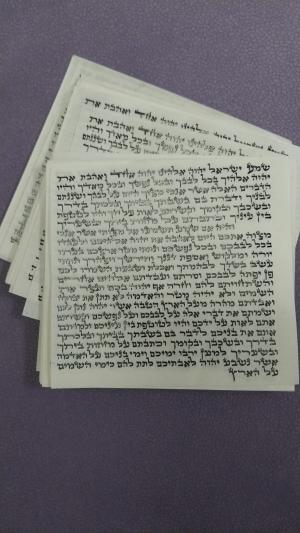 אלהינו יהוה אחד ואהבת את
יהוה אחד ואהבת את
שמע ישראל יהוה אלהינו יהוה אחד ואהבת את
יהוה אלהיך בכל לבבך ובכל נפשך ובכל מאדך והיו
הדברים האלה אשר אנכי מצוך היום על לבבך ושננתם
לבניך ודברת בם בשבתך בביתך ובלכתך בדרך
ובשכבך ובקומך וקשרתם לאות על ידך והיו לטטפת
בין עיניך וכתבתם על מזזות ביתך ובשעריך
והיה אם שמע תשמעו אל מצותי אשר אנכי
מצוה אתכם היום לאהבה את יהוה אלהיכם ולעבדו
בכל לבבכם ובכל נפשכם ונתתי מטר ארצכם בעתו
יורה ומלקוש ואספת דגנך ותירשך ויצהרך ונתתי
עשב בשדך לבהמתך ואכלת ושבעת השמרו לכם
פן יפתה לבבכם וסרתם ועבדתם אלהים אחרים
והשתחויתם להם וחרה אף יהוה בכם ועצר את
השמים ולא יהיה מטר והאדמה לא תתן את יבולה
ואבדתם מהרה מעל הארץ הטבה אשר יהוה נתן לכם
ושמתם את דברי אלה על לבבכם ועל נפשכם וקשרתם
אתם לאות על ידכם והיו לטוטפת בין עיניכם ולמדתם
אתם את בניכם לדבר בם בשבתך בביתך ובלכתך
בדרך ובשכבך ובקומך וכתבתם על מזוזות ביתך
ובשעריך למען ירבו ימיכם וימי בניכם על האדמה
אשר נשבע יהוה לאבתיכם לתת להם כימי השמים
על הארץ